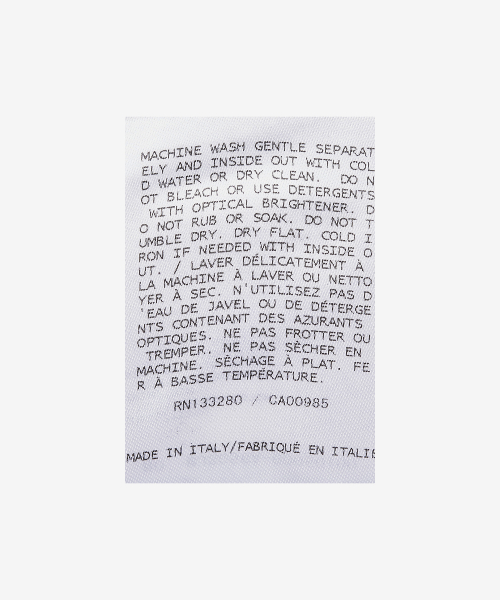 MACHINE WASH GENTLE SEPARAT
ELY AND INSIDE OUT WITH COL
D WATER OR DRY CLEAN. DO N
OT BLEACH OR USE DETERGENTS
WITH OPTICAL BRIGHTENER. D
O NOT RUB OR SOAK. DO NOT T
UMBLE DRY. DRY FLAT. COLD I
RON IF NEEDED WITH INSIDE O
UT. / LAVER DÉLICATEMENT À
LA MACHINE À LAVER OU NETTO
YER À SEC. N'UTILISEZ PAS D
'EAU DE JAVEL OU DE DÉTERGE
NTS CONTENANT DES AZURANTS
OPTIQUES. NE PAS FROTTER OU
TREMPER. NE PAS SÈCHER EN
MACHINE. SÉCHAGE À PLAT. FE
R À BASSE TEMPÉRATURE.
RN133280 / CA00985
MADE IN ITALY/FABRIQUÉ EN ITALIE